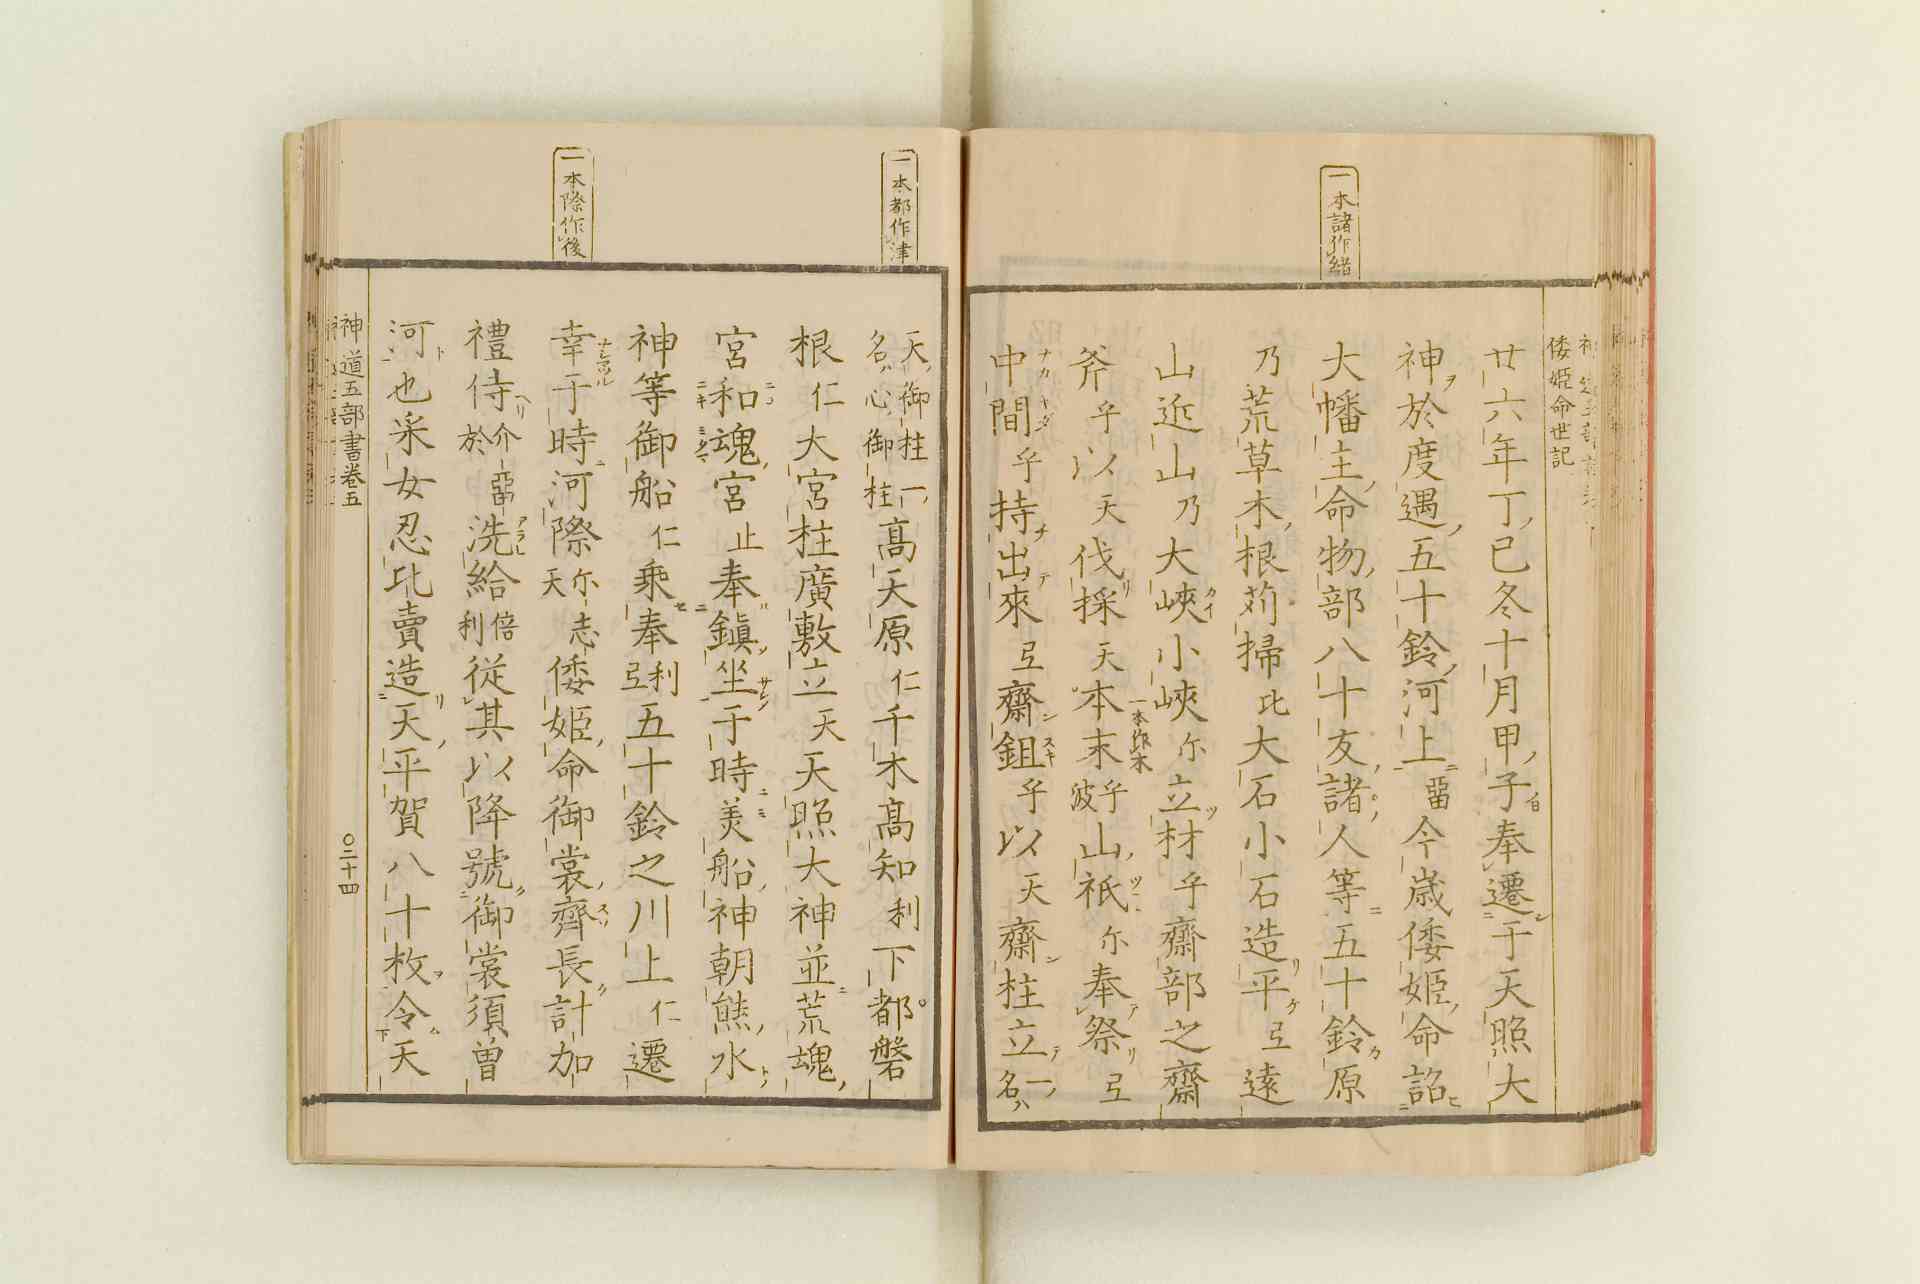 一本諸作緒
倭姫命世記
廿六年丁巳冬十月甲子奉遷于天照大
神於度遇五十鈴河上留今歳倭姫命詔
大幡主命物部八十友諸人等五十鈴原
乃荒草木根苅掃比大石小石造平弖遠
山近山乃大峽小峽尓立材乎齋部之齋
斧乎以天伐採天本末乎波山祇尓奉祭弖
一本作末木
中間乎持出來弖齋鉏乎以天齋柱立一名
一本都作津
一本際作後
天御柱一名心御柱高天原仁千木高知利下都磐
根仁大宮柱廣敷立天天照大神並荒魂
宮和魂宮止奉鎭坐于時美船神朝熊水
神等御船仁乗奉利弖五十鈴之川上仁遷
幸于時河際尓志天倭姫命御裳齊長計加
禮侍於介留洗給倍利從其以降號御裳須曽
河也采女忍比賣造天平賀八十枚令天
神道五部書卷五
〇二十四